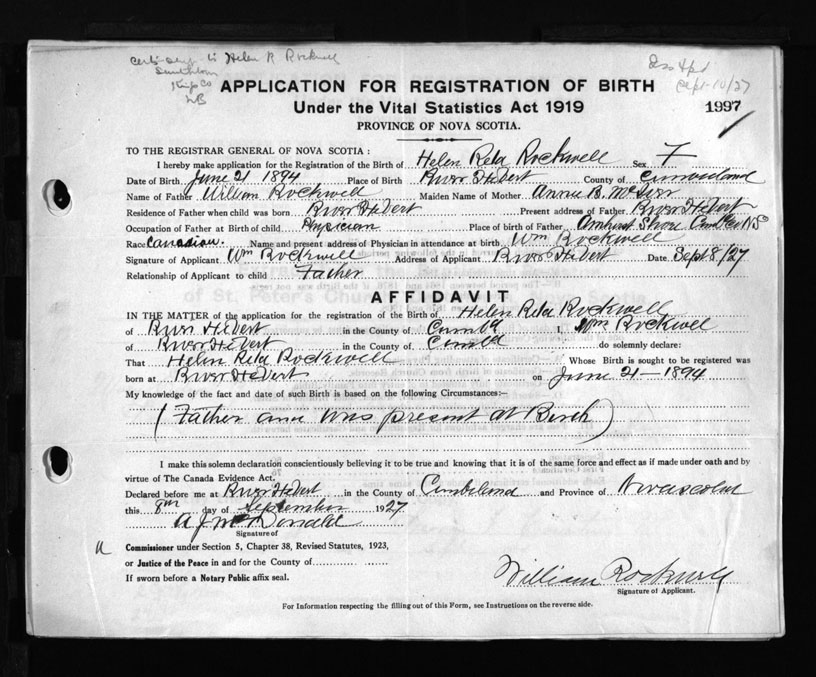 to Helen R Rockwell
Kings Co
NB
Sept-10/27
APPLICATION FOR REGISTRATION OF BIRTH
Under the Vital Statistics Act 1919
1997
PROVINCE OF NOVA SCOTIA.
TO THE REGISTRAR GENERAL OF NOVA SCOTIA :
I hereby make application for the Registration of the Birth of Helen Reta Rockwell Sex F
Date of Birth June 21 1894 Place of Birth River Hebert County of Cumberland
Name of Father William Rockwell Maiden Name of Mother Annie B.
Residence of Father when child was born River Hebert Present address of Father River Hebert
Occupation of Father at Birth of child Physician Place of birth of Father Amherst Shore NS
Race Canadian. Name and present address of Physician in attendance at birth Wm Rockwell
Signature of Applicant Wm Rockwell Address of Applicant River Hebert Date Sept 8/27
Relationship of Applicant to child Father
AFFIDAVIT
IN THE MATTER of the application for the registration of the Birth of Helen Reta Rockwell
of River Hebert in the County of Cumbd I, Wm Rockwell
of River Hebert in the County of Cumbld do solemnly declare:
That Helen Reta Rockwell Whose Birth is sought to be registered was
born at River Hebert on June 21-1894
My knowledge of the fact and date of such Birth is based on the following Circumstances:—
(Father and was present at Birth)
I make this solemn declaration conscientiously believing it to be true and knowing that it is of the same force and effect as if made under oath and by
virtue of The Canada Evidence Act.
Declared before me at River Hebert in the County of Cumberland and Province of Nova Scotia
this 8th day of September 1927
A J McDonald
Signature of
a Commissioner under Section 5, Chapter 38, Revised Statutes, 1923,
or Justice of the Peace in and for the County of
If sworn before a Notary Public affix seal.
William Rockwell
Signature of Applicant.
For Information respecting the filling out of this Form, see Instructions on the reverse side.